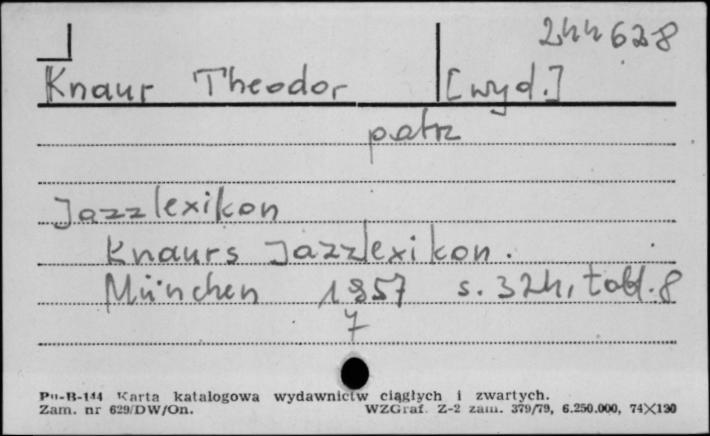 244628
Knaur Theodor [wyd.]
patrz
Jazzlexikon
Knaurs Jazzlexikon.
München 1957 s. 324, tabl. 8
7
Pu-B-144 Karta katalogowa wydawnictw ciągłych i zwartych.
Zam. nr 629/DW/On. WZGraf. Z-2 zam. 379/79, 6.250.000, 74×120